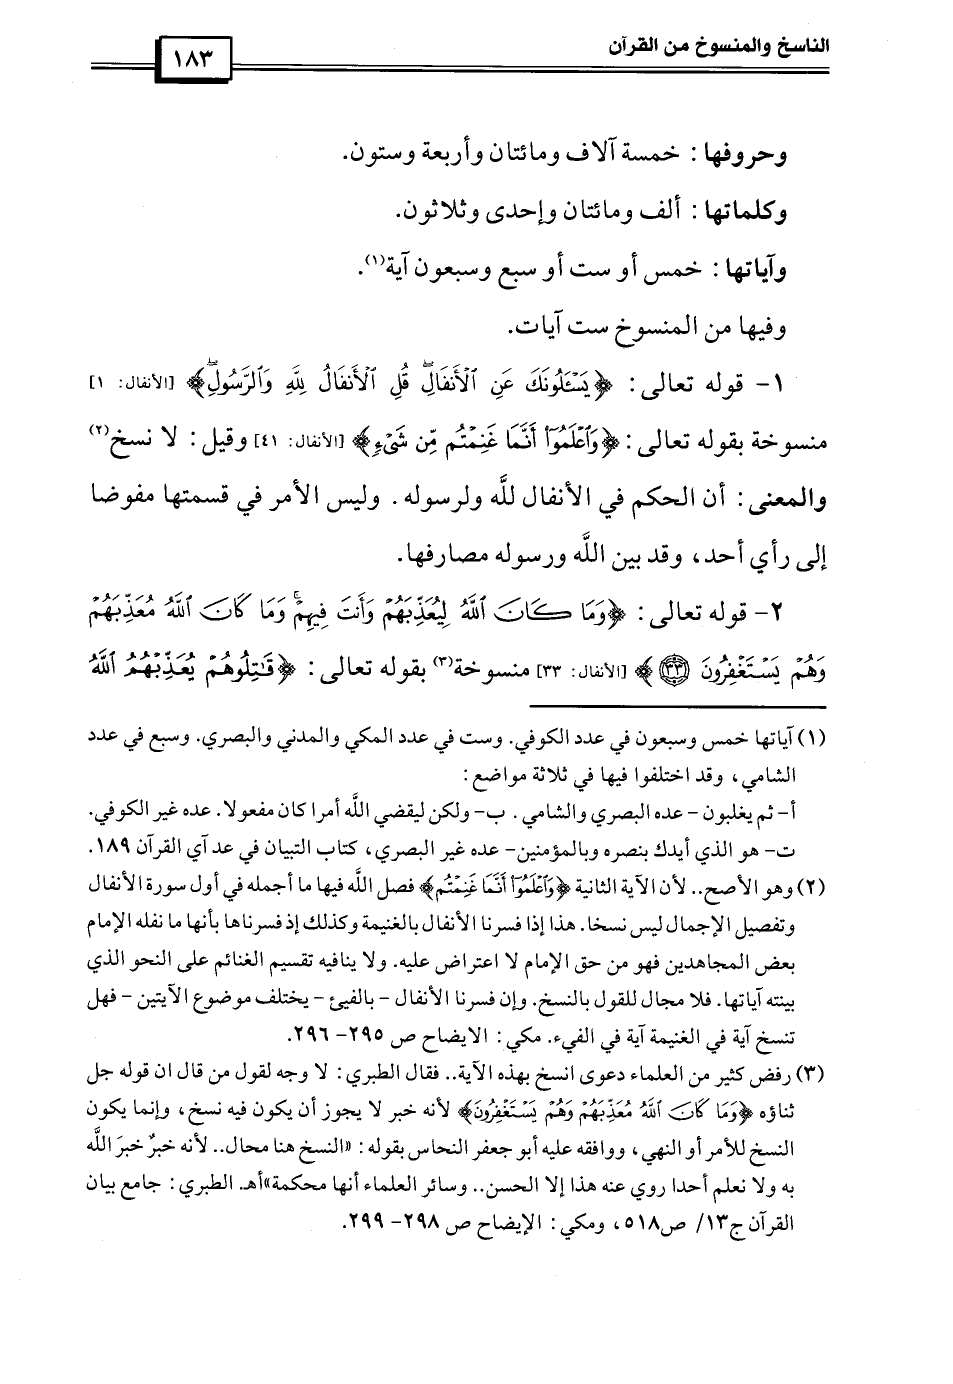 الناسخ والمنسوخ من القرآن
١٨٣
وحروفها : خمسة آلاف ومائتان وأربعة وستون.
وكلماتها : ألف ومائتان وإحدى وثلاثون.
وآياتها : خمس أو ست أو سبع وسبعون آية(١).
وفيها من المنسوخ ست آيات.
١- قوله تعالى: ﴿يَسْـَٔلُونَكَ عَنِ ٱلْأَنفَالِۖ قُلِ ٱلْأَنفَالُ لِلَّهِ وَٱلرَّسُولِۖ﴾ [الأنفال: ١]
منسوخة بقوله تعالى: ﴿وَٱعْلَمُوٓا۟ أَنَّمَا غَنِمْتُم مِّن شَىْءٍ﴾ [الأنفال: ٤١] وقيل: لا نسخ(٢)
والمعنى: أن الحكم في الأنفال للَّه ولرسوله. وليس الأمر في قسمتها مفوضا
إلى رأي أحد، وقد بين اللَّه ورسوله مصارفها.
٢- قوله تعالى: ﴿وَمَا كَانَ ٱللَّهُ لِيُعَذِّبَهُمْ وَأَنتَ فِيهِمْۚ وَمَا كَانَ ٱللَّهُ مُعَذِّبَهُمْ
وَهُمْ يَسْتَغْفِرُونَ ٣٣﴾ [الأنفال: ٣٣] منسوخة(٣) بقوله تعالى: ﴿قَٰتِلُوهُمْ يُعَذِّبْهُمُ ٱللَّهُ
(١) آياتها خمس وسبعون في عدد الكوفي. وست في عدد المكي والمدني والبصري. وسبع في عدد
الشامي، وقد اختلفوا فيها في ثلاثة مواضع:
أ- ثم يغلبون - عده البصري والشامي. ب- ولكن ليقضي اللَّه أمرا كان مفعولا. عده غير الكوفي.
ت- هو الذي أيدك بنصره وبالمؤمنين- عده غير البصري، كتاب التبيان في عد آي القرآن ١٨٩.
(٢) وهو الأصح.. لأن الآية الثانية ﴿وَٱعْلَمُوٓا۟ أَنَّمَا غَنِمْتُم﴾ فصل اللَّه فيها ما أجمله في أول سورة الأنفال
وتفصيل الإجمال ليس نسخا. هذا إذا فسرنا الأنفال بالغنيمة وكذلك إذ فسرناها بأنها ما نفله الإمام
بعض المجاهدين فهو من حق الإمام لا اعتراض عليه. ولا ينافيه تقسيم الغنائم على النحو الذي
بينته آياتها. فلا مجال للقول بالنسخ. وإن فسرنا الأنفال - بالفيئ - يختلف موضوع الآيتين - فهل
تنسخ آية في الغنيمة آية في الفيء. مكي: الايضاح ص ٢٩٥- ٢٩٦.
(٣) رفض كثير من العلماء دعوى انسخ بهذه الآية.. فقال الطبري: لا وجه لقول من قال ان قوله جل
ثناؤه ﴿وَمَا كَانَ ٱللَّهُ مُعَذِّبَهُمْ وَهُمْ يَسْتَغْفِرُونَ﴾ لأنه خبر لا يجوز أن يكون فيه نسخ، وإنما يكون
النسخ للأمر أو النهي، ووافقه عليه أبو جعفر النحاس بقوله: «النسخ هنا محال.. لأنه خبرٌ خبرَ اللَّه
به ولا نعلم أحدا روي عنه هذا إلا الحسن.. وسائر العلماء أنها محكمة»أهـ. الطبري: جامع بيان
القرآن ج١٣/ ص٥١٨، ومكي: الإيضاح ص ٢٩٨- ٢٩٩.